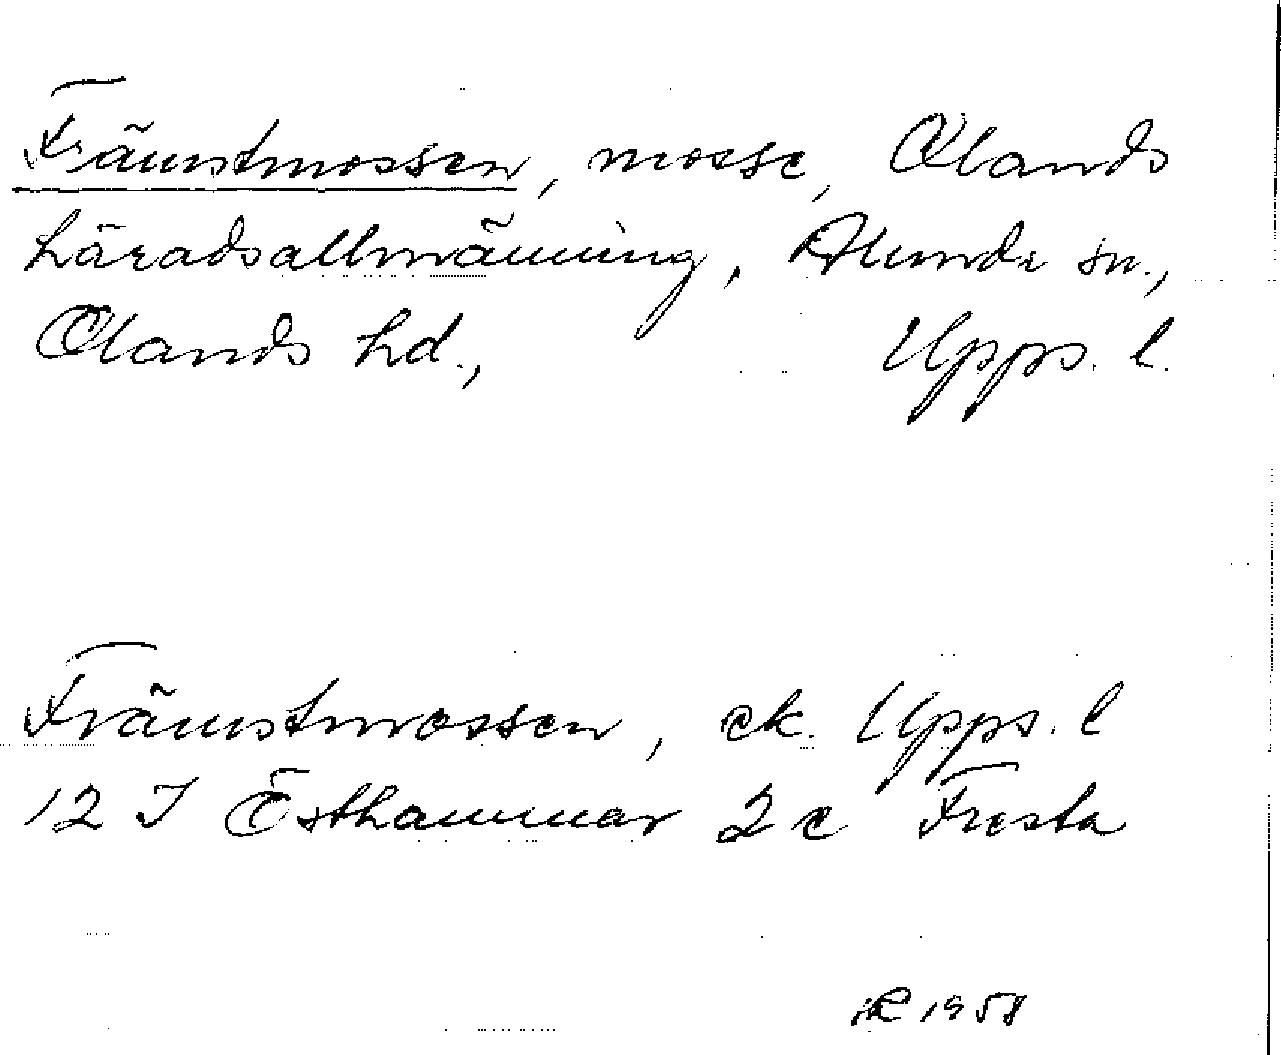 Främstmossen, mosse, Olands
häradsallmänning, Alunda sn.,
Olands hd., Upps. l.
Främstmossen, ek. Upps. l
12 I Östhammar 2 c Fresta
1958